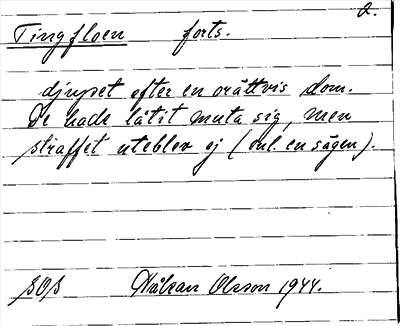 2.
Tingfloen forts.
djupet efter en orättvis dom.
De hade låtit muta sig, men
straffet uteblev ej (enl. en sägen).
SOS Håkan Olsson 1944.